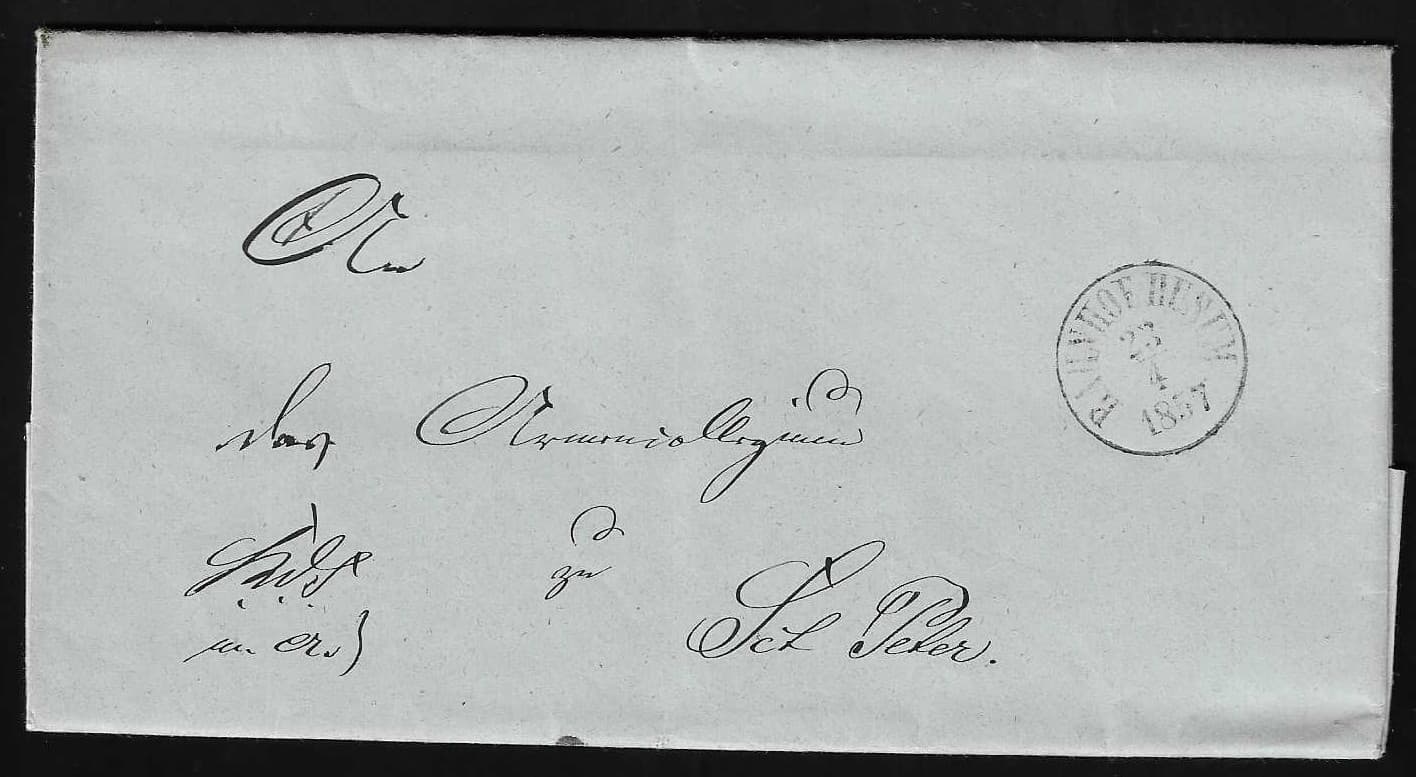 An
das Armencollegium
zu
Sct Peter.
BAHNHOF HUSUM
23
4
1857